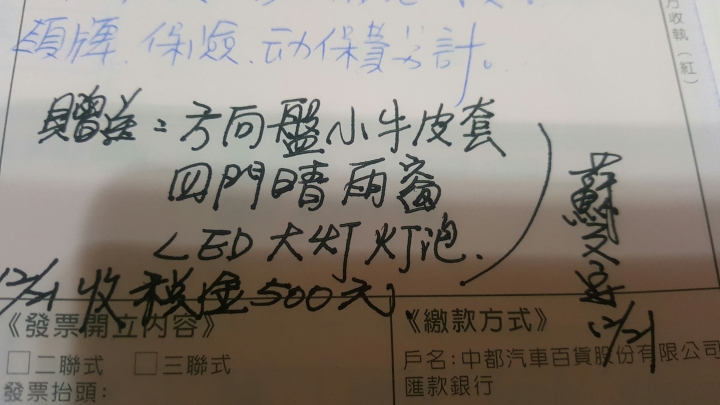 領牌.保險.动保費另計。
月收執（紅）
贈送：方向盤小牛皮套
四門晴雨窗
LED大灯灯泡.
蘇文
12/21
12/21收税金500元
《發票開立內容》
□二聯式 □三聯式
發票抬頭：
《繳款方式》
戶名：中都汽車百貨股份有限公司
匯款銀行